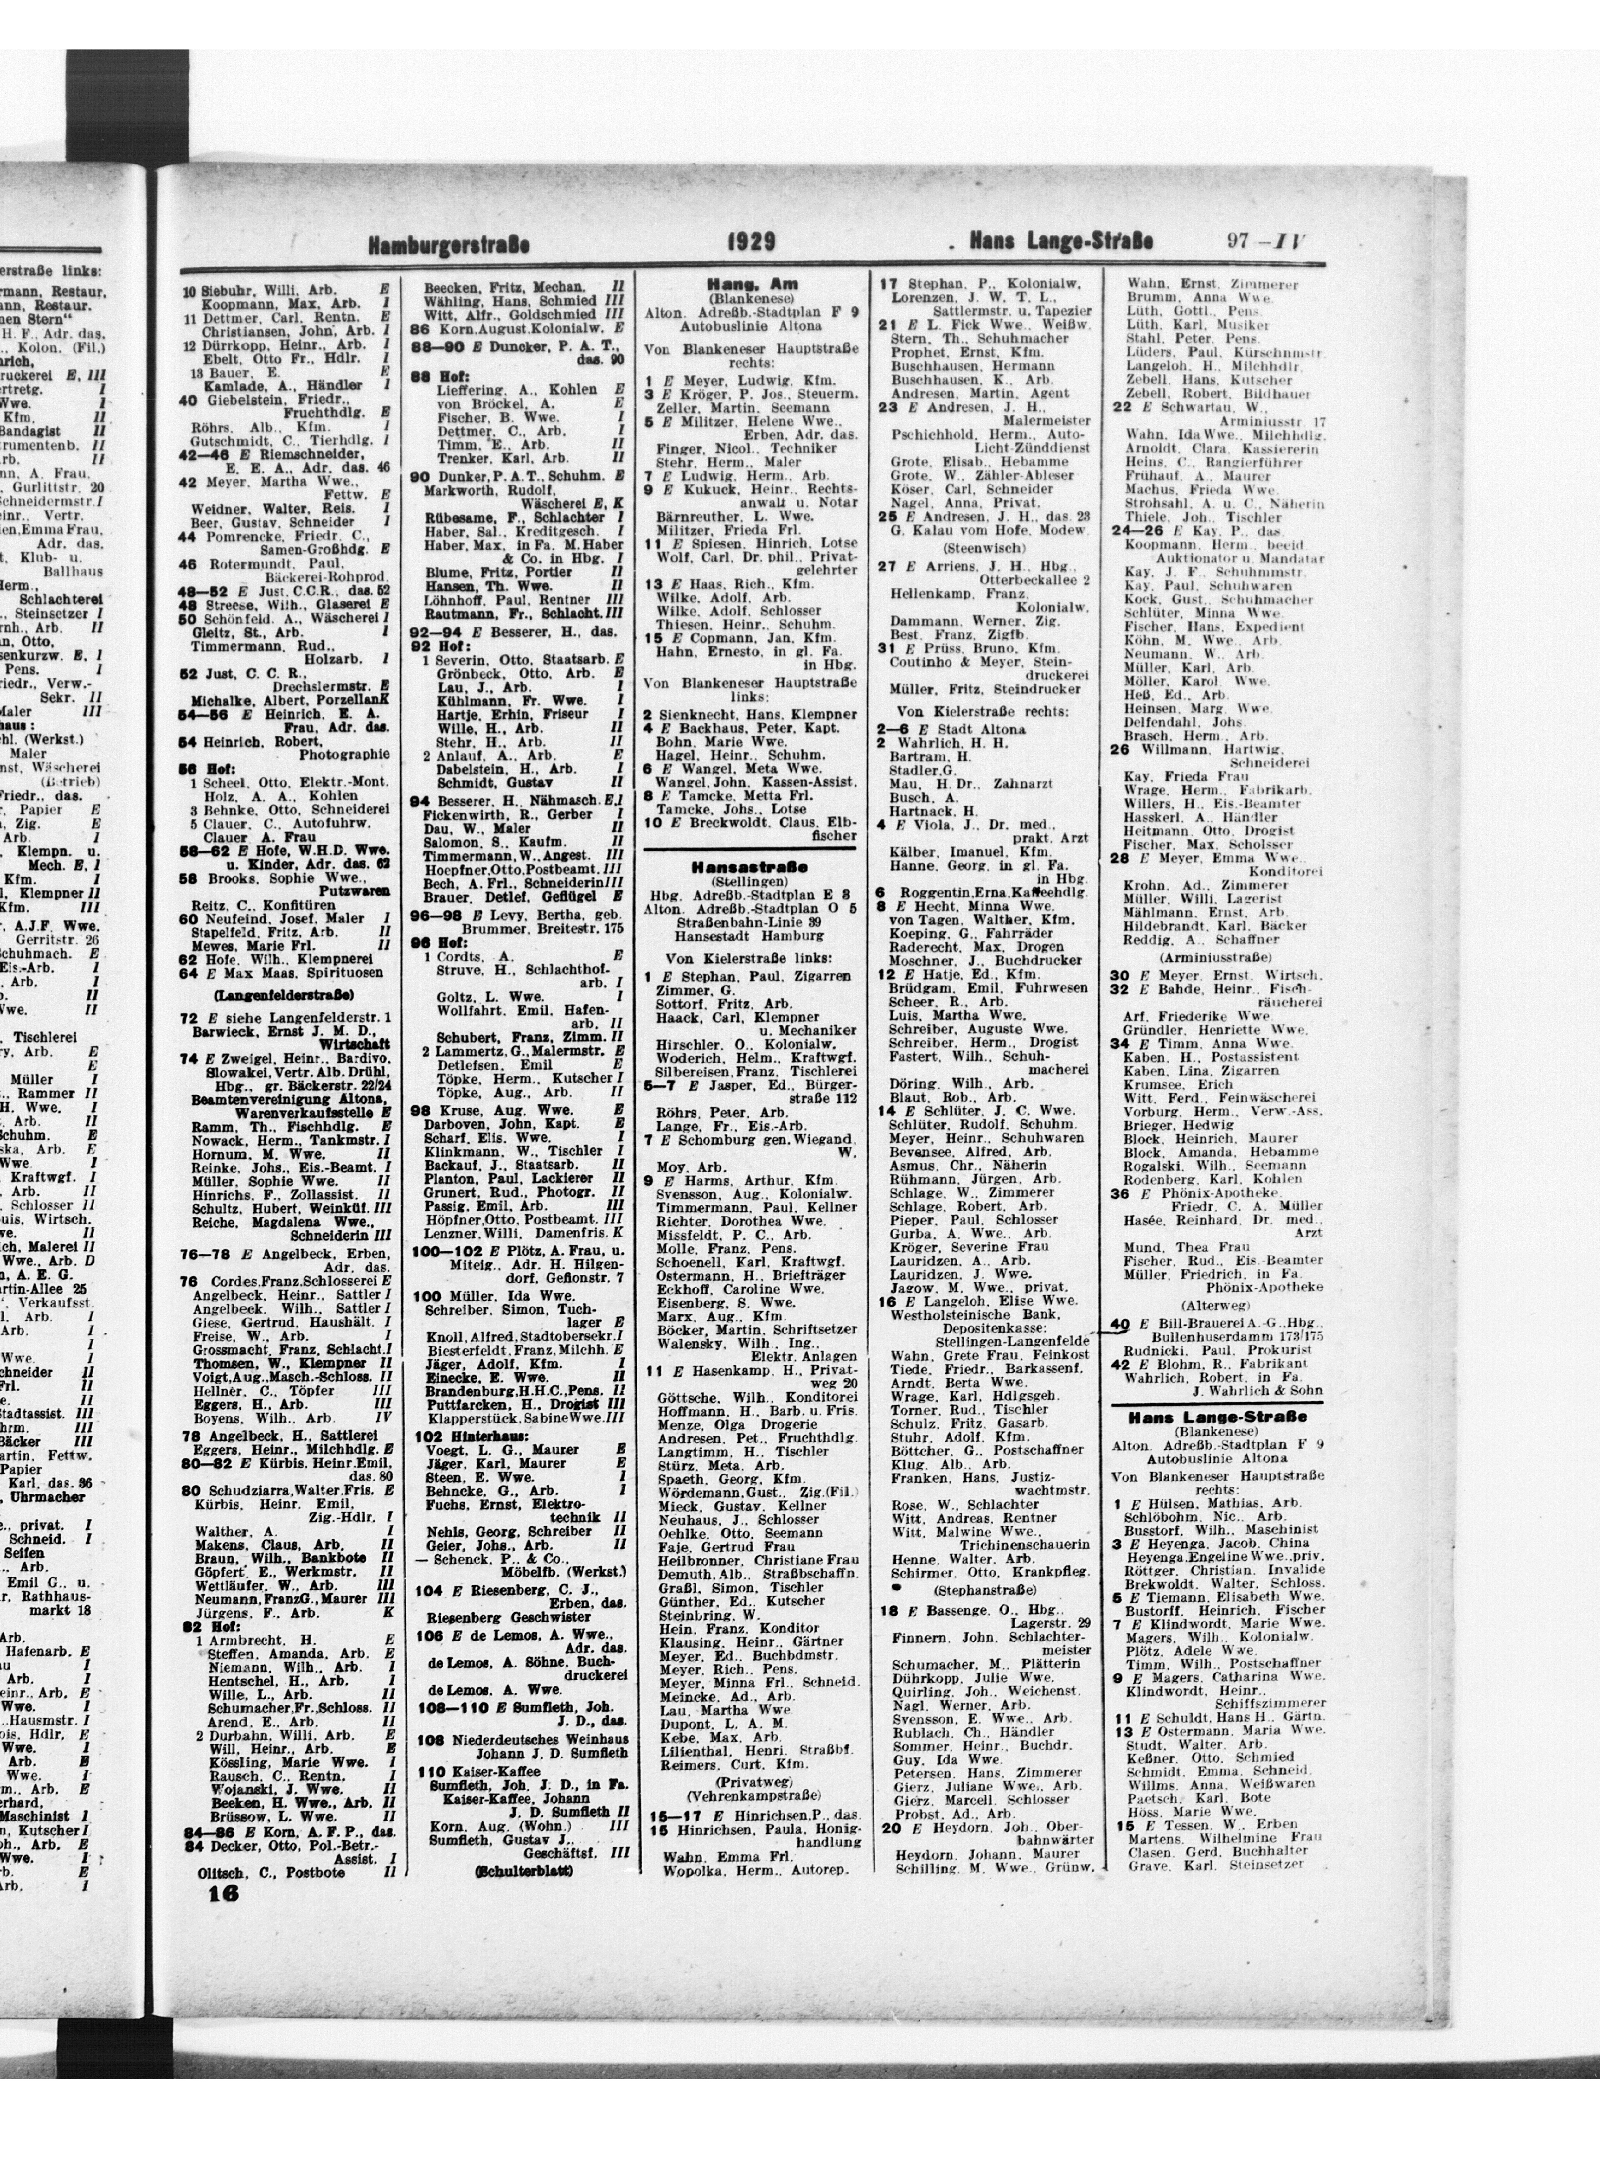 Hamburgerstraße
1929
Hans Lange-Straße
97 – IV
10 Siebuhr, Willi, Arb. E
Koopmann, Max, Arb. I
11 Dettmer, Carl, Rentn. E
Christiansen, John, Arb. I
12 Dürrkopp, Heinr., Arb. I
Ebelt, Otto Fr., Hdlr. I
13 Bauer, E. E
Kamlade, A., Händler I
40 Giebelstein, Friedr.,
Fruchthdlg. E
Röhrs, Alb., Kfm. I
Gutschmidt, C., Tierhdlg. I
42—46 E Riemschneider,
E. E. A., Adr. das. 46
42 Meyer, Martha Wwe.,
Fettw. E
Weidner, Walter, Reis. I
Beer, Gustav, Schneider I
44 Pomrencke, Friedr. C.,
Samen-Großhdg. E
46 Rotermundt, Paul,
Bäckerei-Rohprod.
48—52 E Just, C.C.R., das. 52
48 Streese, Wilh., Glaserei E
50 Schönfeld, A., Wäscherei I
Gleitz, St., Arb. I
Timmermann, Rud.,
Holzarb. I
52 Just, C. C. R.,
Drechslermstr. E
Michalke, Albert, Porzellan K
54—56 E Heinrich, E. A.
Frau, Adr. das.
54 Heinrich, Robert,
Photographie
56 Hof:
1 Scheel, Otto, Elektr.-Mont.
Holz, A. A., Kohlen
3 Behnke, Otto, Schneiderei
5 Clauer, C., Autofuhrw.
Clauer A. Frau
58—62 E Hofe, W.H.D. Wwe.
u. Kinder, Adr. das. 62
58 Brooks, Sophie Wwe.,
Putzwaren
Reitz, C., Konfitüren
60 Neufeind, Josef, Maler I
Stapelfeld, Fritz, Arb. II
Mewes, Marie Frl. II
62 Hofe, Wilh., Klempnerei
64 E Max Maas, Spirituosen
(Langenfelderstraße)
72 E siehe Langenfelderstr. 1
Barwieck, Ernst J. M. D.,
Wirtschaft
74 E Zweigel, Heinr., Bardivo,
Slowakei, Vertr. Alb. Drühl,
Hbg., gr. Bäckerstr. 22/24
Beamtenvereinigung Altona,
Warenverkaufsstelle E
Ramm, Th., Fischhdlg. E
Nowack, Herm., Tankmstr. I
Hornum, M. Wwe. II
Reinke, Johs., Eis.-Beamt. I
Müller, Sophie Wwe. II
Hinrichs, F., Zollassist. II
Schultz, Hubert, Weinküf. III
Reiche, Magdalena Wwe.,
Schneiderin III
76—78 E Angelbeck, Erben,
Adr. das.
76 Cordes, Franz, Schlosserei E
Angelbeck, Heinr., Sattler I
Angelbeck, Wilh., Sattler I
Giese, Gertrud, Haushält. I
Freise, W., Arb. I
Grossmacht, Franz, Schlacht. I
Thomsen, W., Klempner II
Voigt, Aug., Masch.-Schloss. II
Hellner, C., Töpfer III
Eggers, H., Arb. III
Boyens, Wilh., Arb. IV
78 Angelbeck, H., Sattlerei
Eggers, Heinr., Milchhdlg. E
80—82 E Kürbis, Heinr. Emil,
das. 80
80 Schudziarra, Walter, Fris. E
Kürbis, Heinr. Emil,
Zig.-Hdlr. I
Walther, A. I
Makens, Claus, Arb. II
Braun, Wilh., Bankbote II
Göpfert, E., Werkmstr. II
Wettläufer, W., Arb. III
Neumann, Franz G., Maurer III
Jürgens, F., Arb. K
82 Hof:
1 Armbrecht, H. E
Steffen, Amanda, Arb. E
Niemann, Wilh., Arb. I
Hentschel, H., Arb. I
Wille, L., Arb. II
Schumacher, Fr., Schloss. II
Arend, E., Arb. II
2 Durbahn, Willi, Arb. E
Will, Heinr., Arb. E
Kössling, Marie Wwe. I
Rausch, C., Rentn. I
Wojanski, J. Wwe. II
Beeken, H. Wwe., Arb. II
Brüssow, L. Wwe. II
84—86 E Korn, A. F. P., das.
84 Decker, Otto, Pol.-Betr.-
Assist. I
Olitsch, C., Postbote II
16
Beecken, Fritz, Mechan. II
Wähling, Hans, Schmied III
Witt, Alfr., Goldschmied III
86 Korn, August, Kolonialw. E
88—90 E Duncker, P. A. T.,
das. 90
88 Hof:
Lieffering, A., Kohlen E
von Bröckel, A. E
Fischer, B. Wwe. I
Dettmer, C., Arb. I
Timm, E., Arb. II
Trenker, Karl, Arb. II
90 Dunker, P. A. T., Schuhm. E
Markworth, Rudolf,
Wäscherei E, K
Rübesame, F., Schlachter I
Haber, Sal., Kreditgesch. I
Haber, Max, in Fa. M. Haber
& Co. in Hbg. I
Blume, Fritz, Portier II
Hansen, Th. Wwe. II
Löhnhoff, Paul, Rentner III
Rautmann, Fr., Schlacht. III
92—94 E Besserer, H., das.
92 Hof:
1 Severin, Otto, Staatsarb. E
Grönbeck, Otto, Arb. E
Lau, J., Arb. I
Kühlmann, Fr. Wwe. I
Hartje, Erhin, Friseur I
Wille, H., Arb. II
Stehr, H., Arb. II
2 Anlauf, A., Arb. E
Dabelstein, H., Arb. I
Schmidt, Gustav II
94 Besserer, H., Nähmasch. E, I
Fickenwirth, R., Gerber I
Dau, W., Maler II
Salomon, S., Kaufm. II
Timmermann, W., Angest. III
Hoepfner, Otto, Postbeamt. III
Bech, A. Frl., Schneiderin III
Brauer, Detlef, Geflügel E
96—98 E Levy, Bertha, geb.
Brummer, Breitestr. 175
96 Hof:
1 Cordts, A. E
Struve, H., Schlachthof-
arb. I
Goltz, L. Wwe. I
Wollfahrt, Emil, Hafen-
arb. II
Schubert, Franz, Zimm. II
2 Lammertz, G., Malermstr. E
Detlefsen, Emil E
Töpke, Herm., Kutscher I
Töpke, Aug., Arb. II
98 Kruse, Aug. Wwe. E
Darboven, John, Kapt. E
Scharf, Elis. Wwe. I
Klinkmann, W., Tischler I
Backauf, J., Staatsarb. II
Planton, Paul, Lackierer II
Grunert, Rud., Photogr. II
Passig, Emil, Arb. III
Höpfner, Otto, Postbeamt. III
Lenzner, Willi, Damenfris. K
100—102 E Plötz, A. Frau, u.
Miteig., Adr. H. Hilgen-
dorf, Gefionstr. 7
100 Müller, Ida Wwe.
Schreiber, Simon, Tuch-
lager E
Knoll, Alfred, Stadtobersekr. I
Biesterfeldt, Franz, Milchh. E
Jäger, Adolf, Kfm. I
Einecke, E. Wwe. II
Brandenburg, H.H.C., Pens. II
Puttfarcken, H., Drogist III
Klapperstück, Sabine Wwe. III
102 Hinterhaus:
Voegt, L. G., Maurer E
Jäger, Karl, Maurer E
Steen, E. Wwe. I
Behncke, G., Arb. I
Fuchs, Ernst, Elektro-
technik II
Nehls, Georg, Schreiber II
Geier, Johs., Arb. II
— Schenck, P., & Co.,
Möbelfb. (Werkst.)
104 E Riesenberg, C. J.,
Erben, das.
Riesenberg Geschwister
106 E de Lemos, A. Wwe.,
Adr. das.
de Lemos, A. Söhne, Buch-
druckerei
de Lemos, A. Wwe.
108—110 E Sumfleth, Joh.
J. D., das.
108 Niederdeutsches Weinhaus
Johann J. D. Sumfleth
110 Kaiser-Kaffee
Sumfleth, Joh. J. D., in Fa.
Kaiser-Kaffee, Johann
J. D. Sumfleth II
Korn, Aug. (Wohn.) III
Sumfleth, Gustav J.,
Geschäftsf. III
(Schulterblatt)
Hang, Am
(Blankenese)
Alton. Adreßb.-Stadtplan F 9
Autobuslinie Altona
Von Blankeneser Hauptstraße
rechts:
1 E Meyer, Ludwig, Kfm.
3 E Kröger, P. Jos., Steuerm.
Zeller, Martin, Seemann
5 E Militzer, Helene Wwe.,
Erben, Adr. das.
Finger, Nicol., Techniker
Stehr, Herm., Maler
7 E Ludwig, Herm., Arb.
9 E Kukuck, Heinr., Rechts-
anwalt u. Notar
Bärnreuther, L. Wwe.
Militzer, Frieda Frl.
11 E Spiesen, Hinrich, Lotse
Wolf, Carl, Dr. phil., Privat-
gelehrter
13 E Haas, Rich., Kfm.
Wilke, Adolf, Arb.
Wilke, Adolf, Schlosser
Thiesen, Heinr., Schuhm.
15 E Copmann, Jan, Kfm.
Hahn, Ernesto, in gl. Fa.
in Hbg.
Von Blankeneser Hauptstraße
links:
2 Sienknecht, Hans, Klempner
4 E Backhaus, Peter, Kapt.
Bohn, Marie Wwe.
Hagel, Heinr., Schuhm.
6 E Wangel, Meta Wwe.
Wangel, John, Kassen-Assist.
8 E Tamcke, Metta Frl.
Tamcke, Johs., Lotse
10 E Breckwoldt, Claus, Elb-
fischer
Hansastraße
(Stellingen)
Hbg. Adreßb.-Stadtplan E 8
Alton. Adreßb.-Stadtplan O 5
Straßenbahn-Linie 39
Hansestadt Hamburg
Von Kielerstraße links:
1 E Stephan, Paul, Zigarren
Zimmer, G.
Sottorf, Fritz, Arb.
Haack, Carl, Klempner
u. Mechaniker
Hirschler, O., Kolonialw.
Woderich, Helm., Kraftwgf.
Silbereisen, Franz, Tischlerei
5—7 E Jasper, Ed., Bürger-
straße 112
Röhrs, Peter, Arb.
Lange, Fr., Eis.-Arb.
7 E Schomburg gen. Wiegand,
W.
Moy, Arb.
9 E Harms, Arthur, Kfm.
Svensson, Aug., Kolonialw.
Timmermann, Paul, Kellner
Richter, Dorothea Wwe.
Missfeldt, P. C., Arb.
Molle, Franz, Pens.
Schoenell, Karl, Kraftwgf.
Ostermann, H., Briefträger
Eckhoff, Caroline Wwe.
Eisenberg, S. Wwe.
Marx, Aug., Kfm.
Böcker, Martin, Schriftsetzer
Walensky, Wilh., Ing.,
Elektr. Anlagen
11 E Hasenkamp, H., Privat-
weg 20
Göttsche, Wilh., Konditorei
Hoffmann, H., Barb. u. Fris.
Menze, Olga Drogerie
Andresen, Pet., Fruchthdlg.
Langtimm, H., Tischler
Stürz, Meta, Arb.
Spaeth, Georg, Kfm.
Wördemann, Gust., Zig. (Fil.)
Mieck, Gustav, Kellner
Neuhaus, J., Schlosser
Oehlke, Otto, Seemann
Faje, Gertrud Frau
Heilbronner, Christiane Frau
Demuth, Alb., Straßbschaffn.
Graßl, Simon, Tischler
Günther, Ed., Kutscher
Steinbring, W.
Hein, Franz, Konditor
Klausing, Heinr., Gärtner
Meyer, Ed., Buchbdmstr.
Meyer, Rich., Pens.
Meyer, Minna Frl., Schneid.
Meincke, Ad., Arb.
Lau, Martha Wwe
Dupont, L. A. M.
Kebe, Max, Arb.
Lilienthal, Henri, Straßbf.
Reimers, Curt, Kfm.
(Privatweg)
(Vehrenkampstraße)
15—17 E Hinrichsen, P., das.
15 Hinrichsen, Paula, Honig-
handlung
Wahn, Emma Frl.
Wopolka, Herm., Autorep.
17 Stephan, P., Kolonialw.
Lorenzen, J. W. T. L.,
Sattlermstr. u. Tapezier
21 E L. Fick Wwe., Weißw.
Stern, Th., Schuhmacher
Prophet, Ernst, Kfm.
Buschhausen, Hermann
Buschhausen, K., Arb.
Andresen, Martin, Agent
23 E Andresen, J. H.,
Malermeister
Pschichhold, Herm., Auto-
Licht-Zünddienst
Grote, Elisab., Hebamme
Grote, W., Zähler-Ableser
Köser, Carl, Schneider
Nagel, Anna, Privat.
25 E Andresen, J. H., das. 23
G. Kalau vom Hofe, Modew.
(Steenwisch)
27 E Arriens, J. H., Hbg.,
Otterbeckallee 2
Hellenkamp, Franz,
Kolonialw.
Dammann, Werner, Zig.
Best, Franz, Zigfb.
31 E Prüss, Bruno, Kfm.
Coutinho & Meyer, Stein-
druckerei
Müller, Fritz, Steindrucker
Von Kielerstraße rechts:
2—6 E Stadt Altona
2 Wahrlich, H. H.
Bartram, H.
Stadler, G.
Mau, H. Dr., Zahnarzt
Busch, A.
Hartnack, H.
4 E Viola, J., Dr. med.,
prakt. Arzt
Kälber, Imanuel, Kfm.
Hanne, Georg, in gl. Fa.
in Hbg.
6 Roggentin, Erna, Kaffeehdlg.
8 E Hecht, Minna Wwe.
von Tagen, Walther, Kfm.
Koeping, G., Fahrräder
Raderecht, Max, Drogen
Moschner, J., Buchdrucker
12 E Hatje, Ed., Kfm.
Brüdgam, Emil, Fuhrwesen
Scheer, R., Arb.
Luis, Martha Wwe.
Schreiber, Auguste Wwe.
Schreiber, Herm., Drogist
Fastert, Wilh., Schuh-
macherei
Döring, Wilh., Arb.
Blaut, Rob., Arb.
14 E Schlüter, J. C. Wwe.
Schlüter, Rudolf, Schuhm.
Meyer, Heinr., Schuhwaren
Bevensee, Alfred, Arb.
Asmus, Chr., Näherin
Rühmann, Jürgen, Arb.
Schlage, W., Zimmerer
Schlage, Robert, Arb.
Pieper, Paul, Schlosser
Gurba, A. Wwe., Arb.
Kröger, Severine Frau
Lauridzen, A., Arb.
Lauridzen, J. Wwe.
Jagow, M. Wwe., privat.
16 E Langeloh, Elise Wwe.
Westholsteinische Bank,
Depositenkasse:
Stellingen-Langenfelde
Wahn, Grete Frau, Feinkost
Tiede, Friedr., Barkassenf.
Arndt, Berta Wwe.
Wrage, Karl, Hdlgsgeh.
Torner, Rud., Tischler
Schulz, Fritz, Gasarb.
Stuhr, Adolf, Kfm.
Böttcher, G., Postschaffner
Klug, Alb., Arb.
Franken, Hans, Justiz-
wachtmstr.
Rose, W., Schlachter
Witt, Andreas, Rentner
Witt, Malwine Wwe.,
Trichinenschauerin
Henne, Walter, Arb.
Schirmer, Otto, Krankpfleg.
(Stephanstraße)
18 E Bassenge, O., Hbg.,
Lagerstr. 29
Finnern, John, Schlachter-
meister
Schumacher, M., Plätterin
Dührkopp, Julie Wwe.
Quirling, Joh., Weichenst.
Nagl, Werner, Arb.
Svensson, E. Wwe., Arb.
Rublach, Ch., Händler
Sommer, Heinr., Buchdr.
Guy, Ida Wwe.
Petersen, Hans, Zimmerer
Gierz, Juliane Wwe., Arb.
Gierz, Marcell, Schlosser
Probst, Ad., Arb.
20 E Heydorn, Joh., Ober-
bahnwärter
Heydorn, Johann, Maurer
Schilling, M. Wwe., Grünw.
Wahn, Ernst, Zimmerer
Brumm, Anna Wwe.
Lüth, Gottl., Pens.
Lüth, Karl, Musiker
Stahl, Peter, Pens.
Lüders, Paul, Kürschnmstr.
Langeloh, H., Milchhdlr.
Zebell, Hans, Kutscher
Zebell, Robert, Bildhauer
22 E Schwartau, W.,
Arminiusstr. 17
Wahn, Ida Wwe., Milchhdlg.
Arnoldt, Clara, Kassiererin
Heins, C., Rangierführer
Frühauf, A., Maurer
Machus, Frieda Wwe.
Strohsahl, A. u. C., Näherin
Thiele, Joh., Tischler
24—26 E Kay, P., das.
Koopmann, Herm., beeid.
Auktionator u. Mandatar
Kay, J. F., Schuhmmstr.
Kay, Paul, Schuhwaren
Kock, Gust., Schuhmacher
Schlüter, Minna Wwe.
Fischer, Hans, Expedient
Köhn, M. Wwe., Arb.
Neumann, W., Arb.
Müller, Karl, Arb.
Möller, Karol. Wwe.
Heß, Ed., Arb.
Heinsen, Marg. Wwe.
Delfendahl, Johs.
Brasch, Herm., Arb.
26 Willmann, Hartwig,
Schneiderei
Kay, Frieda Frau
Wrage, Herm., Fabrikarb.
Willers, H., Eis.-Beamter
Hasskerl, A., Händler
Heitmann, Otto, Drogist
Fischer, Max, Scholsser
28 E Meyer, Emma Wwe.,
Konditorei
Krohn, Ad., Zimmerer
Müller, Willi, Lagerist
Mählmann, Ernst, Arb.
Hildebrandt, Karl, Bäcker
Reddig, A., Schaffner
(Arminiusstraße)
30 E Meyer, Ernst, Wirtsch.
32 E Bahde, Heinr., Fisch-
räucherei
Arf, Friederike Wwe.
Gründler, Henriette Wwe.
34 E Timm, Anna Wwe.
Kaben, H., Postassistent
Kaben, Lina, Zigarren
Krumsee, Erich
Witt, Ferd., Feinwäscherei
Vorburg, Herm., Verw.-Ass.
Brieger, Hedwig
Block, Heinrich, Maurer
Block, Amanda, Hebamme
Rogalski, Wilh., Seemann
Rodenberg, Karl, Kohlen
36 E Phönix-Apotheke,
Friedr. C. A. Müller
Hasée, Reinhard, Dr. med.,
Arzt
Mund, Thea Frau
Fischer, Rud., Eis.-Beamter
Müller, Friedrich, in Fa.
Phönix-Apotheke
(Alterweg)
40 E Bill-Brauerei A.-G., Hbg.,
Bullenhuserdamm 173/175
Rudnicki, Paul, Prokurist
42 E Blohm, R., Fabrikant
Wahrlich, Robert, in Fa.
J. Wahrlich & Sohn
Hans Lange-Straße
(Blankenese)
Alton. Adreßb.-Stadtplan F 9
Autobuslinie Altona
Von Blankeneser Hauptstraße
rechts:
1 E Hülsen, Mathias, Arb.
Schlöbohm, Nic., Arb.
Busstorf, Wilh., Maschinist
3 E Heyenga, Jacob, China
Heyenga, Engeline Wwe., priv.
Röttger, Christian, Invalide
Brekwoldt, Walter, Schloss.
5 E Tiemann, Elisabeth Wwe.
Bustorff, Heinrich, Fischer
7 E Klindwordt, Marie Wwe.
Magers, Wilh., Kolonialw.
Plötz, Adele Wwe.
Timm, Wilh., Postschaffner
9 E Magers, Catharina Wwe.
Klindwordt, Heinr.,
Schiffszimmerer
11 E Schuldt, Hans H., Gärtn.
13 E Ostermann, Maria Wwe.
Studt, Walter, Arb.
Keßner, Otto, Schmied
Schmidt, Emma, Schneid.
Willms, Anna, Weißwaren
Paetsch, Karl, Bote
Höss, Marie Wwe.
15 E Tessen, W., Erben
Martens, Wilhelmine Frau
Clasen, Gerd, Buchhalter
Grave, Karl, Steinsetzer